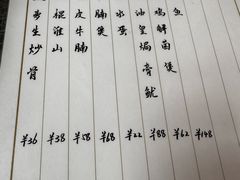 鱼 ¥148
鸡 菌煲 ¥62
油皇焗膏鱿 ¥88
水蛋 ¥22
腩煲 ¥68
皮牛腩 ¥58
棍淮山 ¥38
生炒骨 ¥36